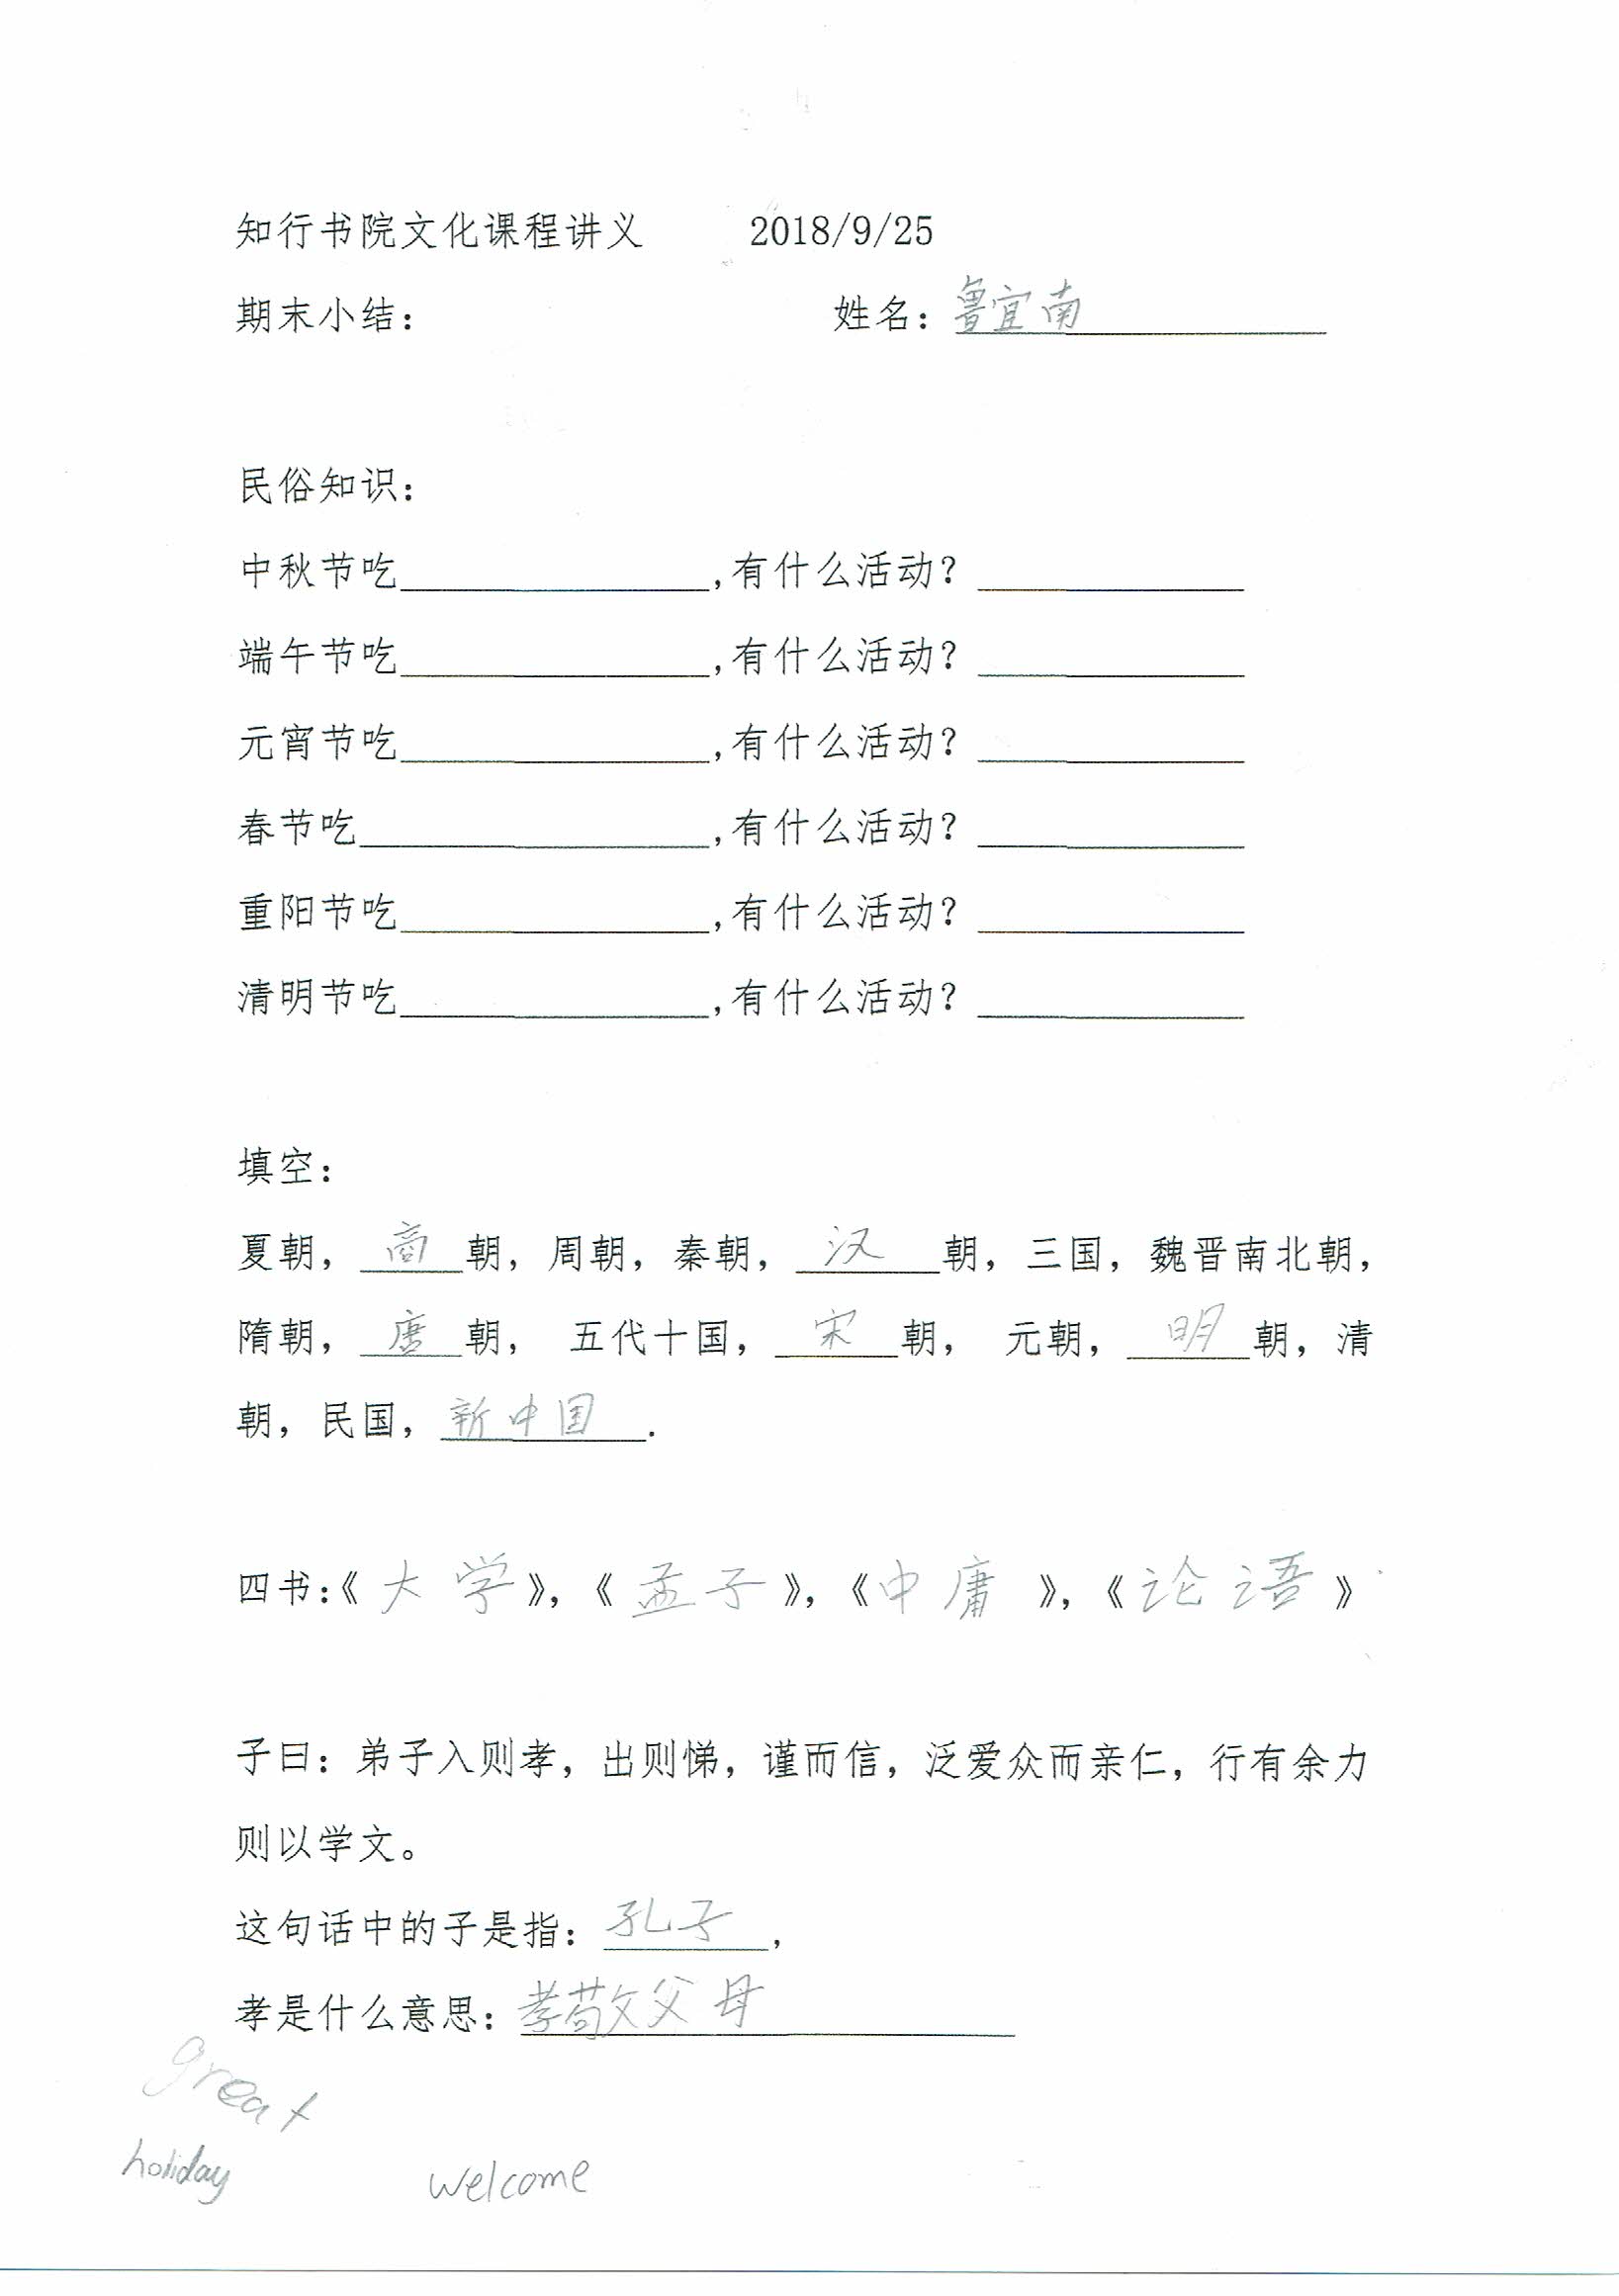 知行书院文化课程讲义 2018/9/25
期末小结： 姓名：鲁宜南
民俗知识：
中秋节吃_______________,有什么活动？_____________
端午节吃_______________,有什么活动？_____________
元宵节吃_______________,有什么活动？_____________
春节吃_________________,有什么活动？_____________
重阳节吃_______________,有什么活动？_____________
清明节吃_______________,有什么活动？_____________
填空：
夏朝，商朝，周朝，秦朝，汉朝，三国，魏晋南北朝，
隋朝，唐朝， 五代十国，宋朝， 元朝，明朝，清
朝，民国，新中国.
四书：《大学》，《孟子》，《中庸》，《论语》
子曰：弟子入则孝，出则悌，谨而信，泛爱众而亲仁，行有余力
则以学文。
这句话中的子是指：孔子，
孝是什么意思：孝敬父母
great
holiday welcome